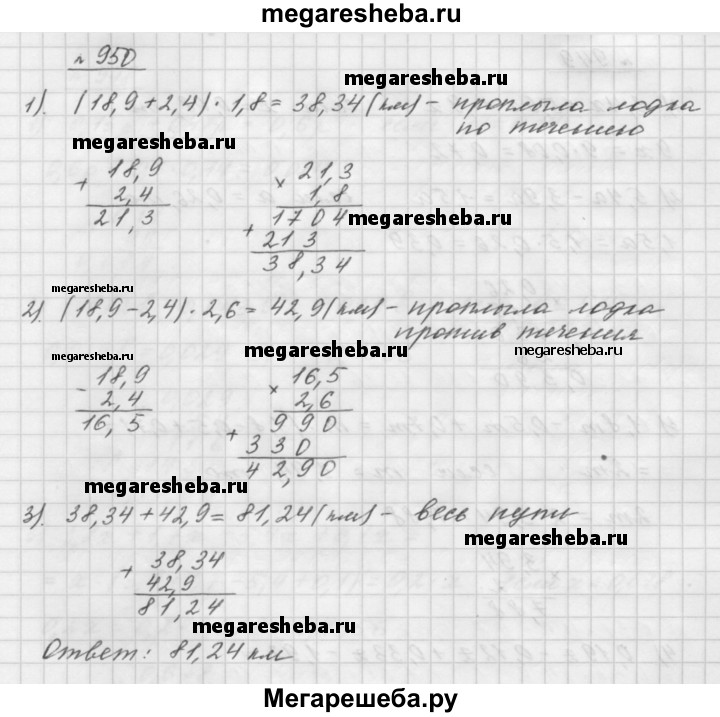 megaresheba.ru
№ 950
megaresheba.ru
1). (18,9+2,4)·1,8=38,34(км)- проплыла лодка
по течению
megaresheba.ru
+ 18,9
2,4
21,3
× 21,3
1,8
+ 1704
213
38,34
megaresheba.ru
megaresheba.ru
2). (18,9-2,4)·2,6=42,9(км)- проплыла лодка
против течения
megaresheba.ru
megaresheba.ru
megaresheba.ru
- 18,9
2,4
16,5
× 16,5
2,6
+ 990
330
42,90
megaresheba.ru
3). 38,34+42,9=81,24(км)- весь путь
megaresheba.ru
+ 38,34
42,9
81,24
megaresheba.ru
Ответ: 81,24 км
Мегарешеба.ру